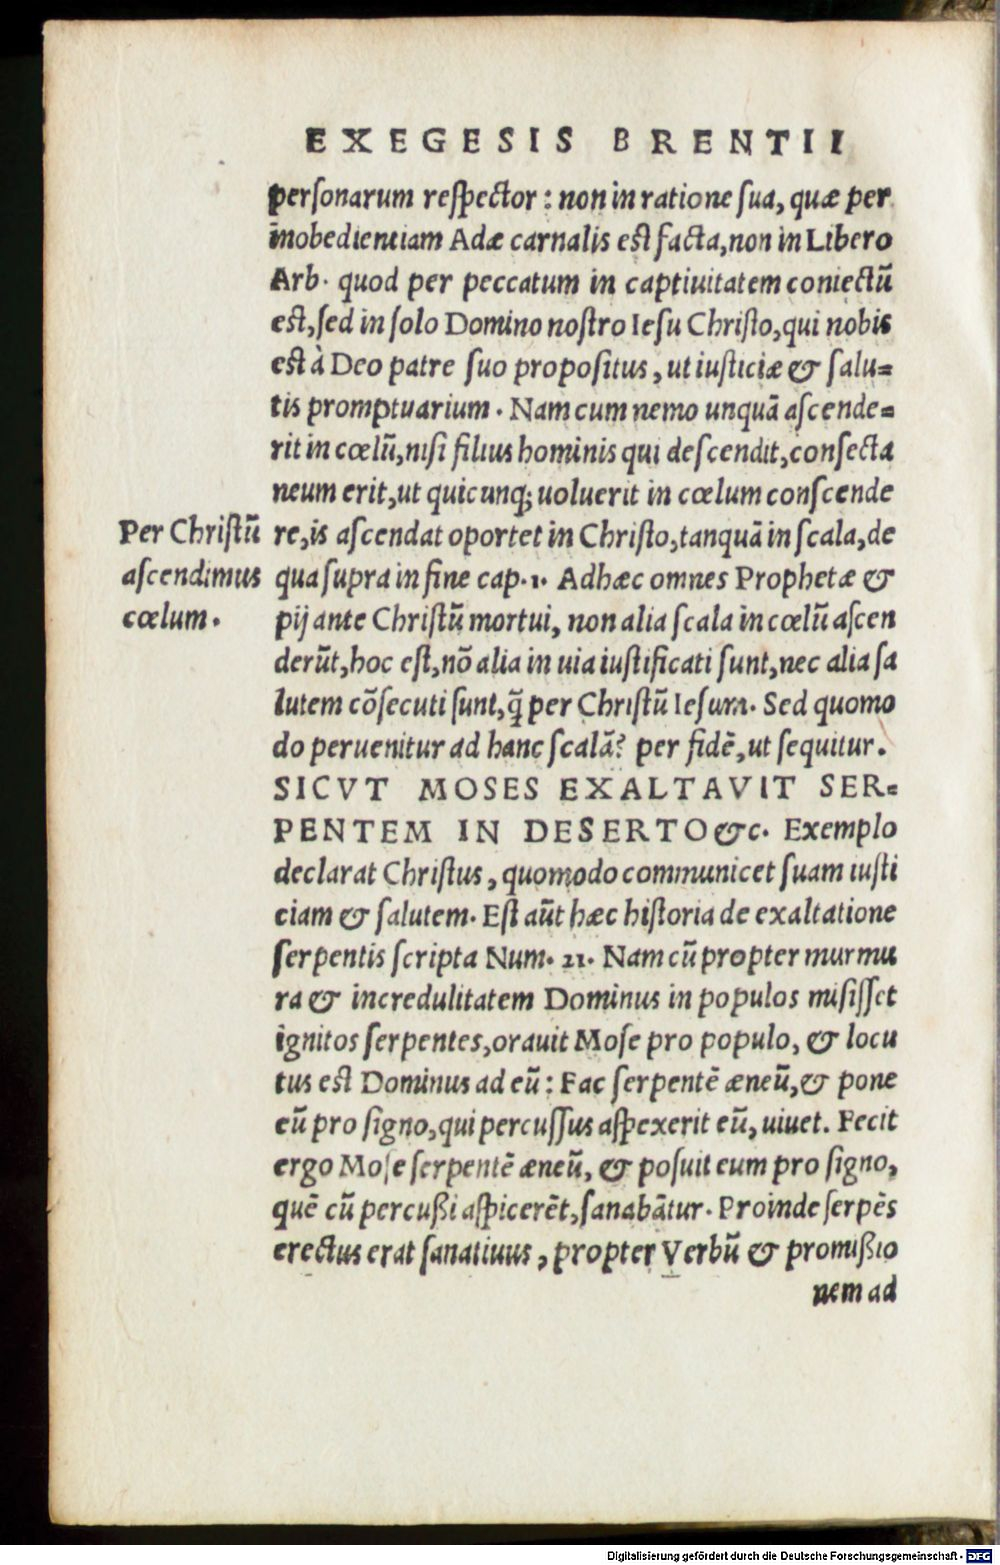 EXEGESIS BRENTII
personarum respector: non in ratione sua, quæ per
inobedientiam Adæ carnalis est facta, non in Libero
Arb. quod per peccatum in captiuitatem coniectũ
est, sed in solo Domino nostro Iesu Christo, qui nobis
est à Deo patre suo propositus, ut iusticiæ & salu=
tis promptuarium. Nam cum nemo unquã ascende=
rit in cœlũ, nisi filius hominis qui descendit, consecta
neum erit, ut quicunq; uoluerit in cœlum conscende
Per Christũ
ascendimus
cœlum.
re, is ascendat oportet in Christo, tanquã in scala, de
qua supra in fine cap. 1. Adhæc omnes Prophetæ &
pij ante Christũ mortui, non alia scala in cœlũ ascen
derũt, hoc est, nõ alia in uia iustificati sunt, nec alia sa
lutem cõsecuti sunt, q̃ per Christũ Iesum. Sed quomo
do peruenitur ad hanc scalã? per fidẽ, ut sequitur.
SICVT MOSES EXALTAVIT SER=
PENTEM IN DESERTO &c. Exemplo
declarat Christus, quomodo communicet suam iusti
ciam & salutem. Est aũt hæc historia de exaltatione
serpentis scripta Num. 21. Nam cũ propter murmu
ra & incredulitatem Dominus in populos misisset
ignitos serpentes, orauit Mose pro populo, & locu
tus est Dominus ad eũ: Fac serpentẽ æneũ, & pone
eũ pro signo, qui percussus aspexerit eũ, uiuet. Fecit
ergo Mose serpentẽ æneũ, & posuit eum pro signo,
quẽ cũ percußi aspicerẽt, sanabãtur. Proinde serpẽs
erectus erat sanatiuus, propter Verbũ & promißio
nem ad
Digitalisierung gefördert durch die Deutsche Forschungsgemeinschaft - DFG